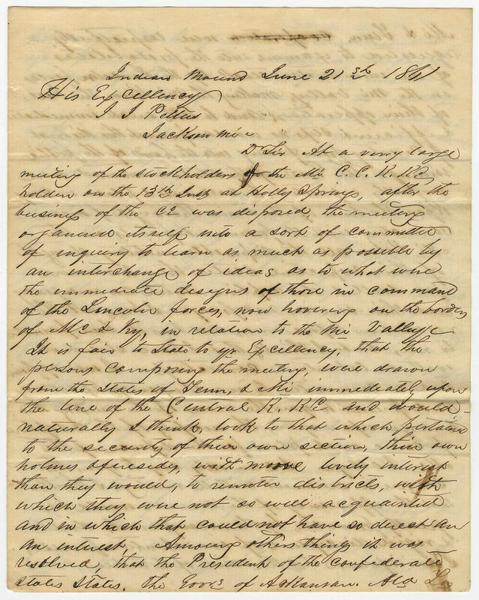 Indian Mound June 21st 1861
His Excellency
J J Pettus
Jackson Mi
Dr Sir At a very large
meeting of the stockholders of the Mi. C. C. R. R Co
holden on the 13th Inst at Holly Springs, after the
business of the Co was disposed, the meeting
organized itself into a sort of committee
of inquiry to learn as much as possible by
an interchange of ideas as to what were
the immediate designs of those in command
of the Lincoln forces, now hovering on the borders
of Mo & Ky, in relation to the Mi Valley
It is fair to State to yr Excellency, that the
persons composing the meeting, were drawn
from the States of Tenn, & Mi immediately upon
the line of the Central R. R Co and would
naturally I think, look to that which pertained
to the security of their own section, their own
homes & firesides, with more lively interest
than they would, to remoter districts, with
which they were not so well acquainted
and in which that could not have so direct an
an interest, Among other things it was
resolved, that the President of the Confederate
States States. the Govrs of Arkansas. Ala La